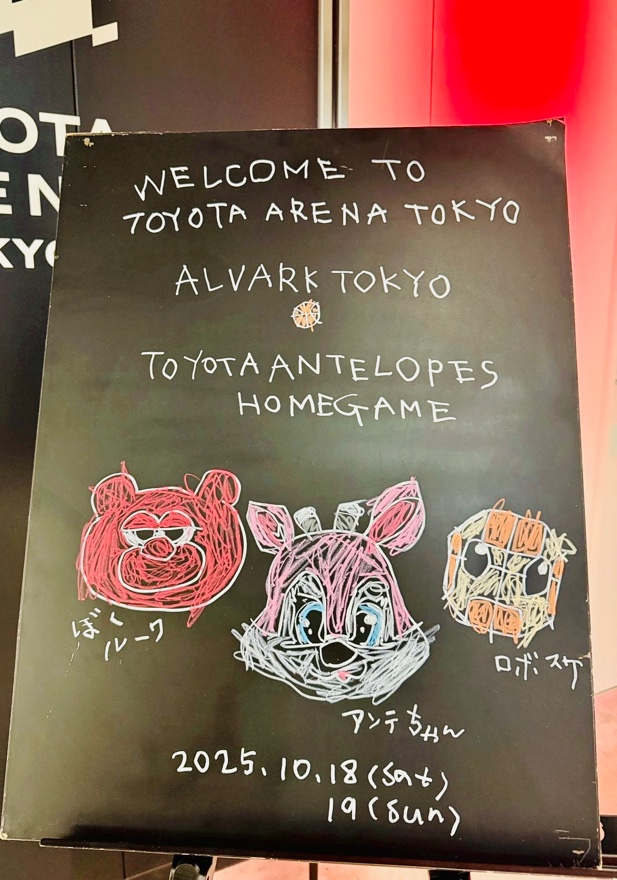 OTA
EN
KYO
WELCOME TO
TOYOTA ARENA TOKYO
ALVARK TOKYO
TOYOTA ANTELOPES
HOMEGAME
ぼく
ルーク
ロボスケ
アンテちゃん
2025.10.18(sat)
19(sun)